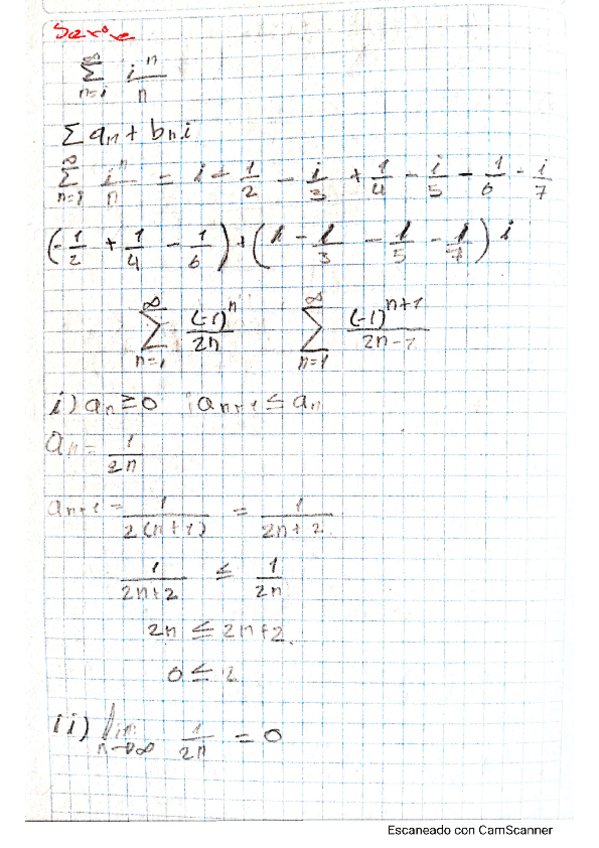 Serie
∞ Σ n=1 i^n / n
Σ an + bn i
∞ Σ n=1 i^n / n = i - 1/2 - i/3 + 1/4 - i/5 - 1/6 - i/7
(-1/2 + 1/4 - 1/6) + (1 - 1/3 - 1/5 - 1/7) i
∞ Σ n=1 (-1)^n / 2n ∞ Σ n=1 (-1)^n+1 / 2n-1
i) an ≥ 0 ; an+1 ≤ an
an = 1/2n
an+1 = 1/2(n+1) = 1/2n+2
1/2n+2 ≤ 1/2n
2n ≤ 2n+2.
0 ≤ 2
ii) lim n→∞ 1/2n = 0
Escaneado con CamScanner